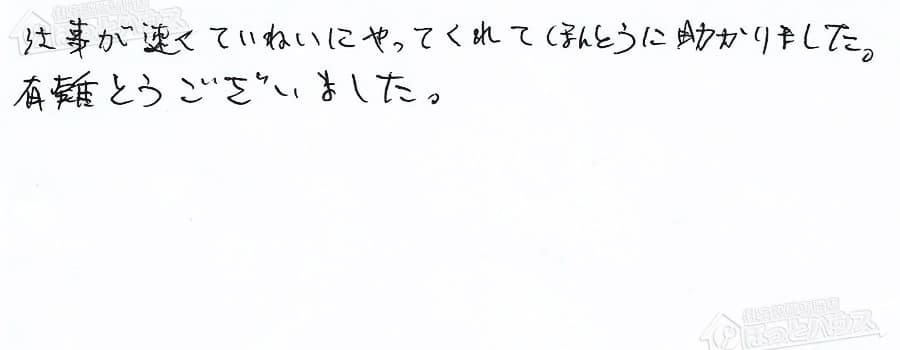 仕事が速くていねいにやってくれてほんとうに助かりました。
有難とうございました。
ほっとハウス